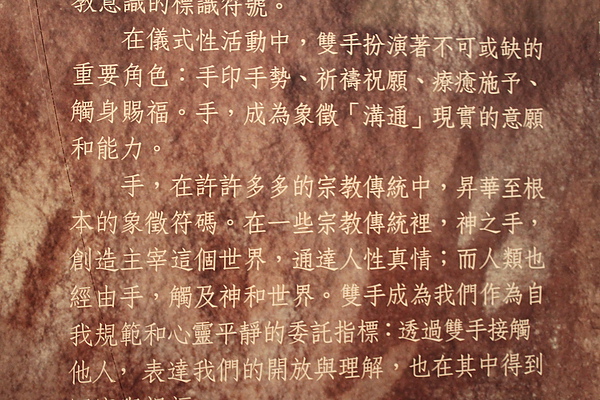 教意識的標識符號。
在儀式性活動中，雙手扮演著不可或缺的
重要角色：手印手勢、祈禱祝願、療癒施予、
觸身賜福。手，成為象徵「溝通」現實的意願
和能力。
手，在許許多多的宗教傳統中，昇華至根
本的象徵符碼。在一些宗教傳統裡，神之手，
創造主宰這個世界，通達人性真情；而人類也
經由手，觸及神和世界。雙手成為我們作為自
我規範和心靈平靜的委託指標：透過雙手接觸
他人，表達我們的開放與理解，也在其中得到